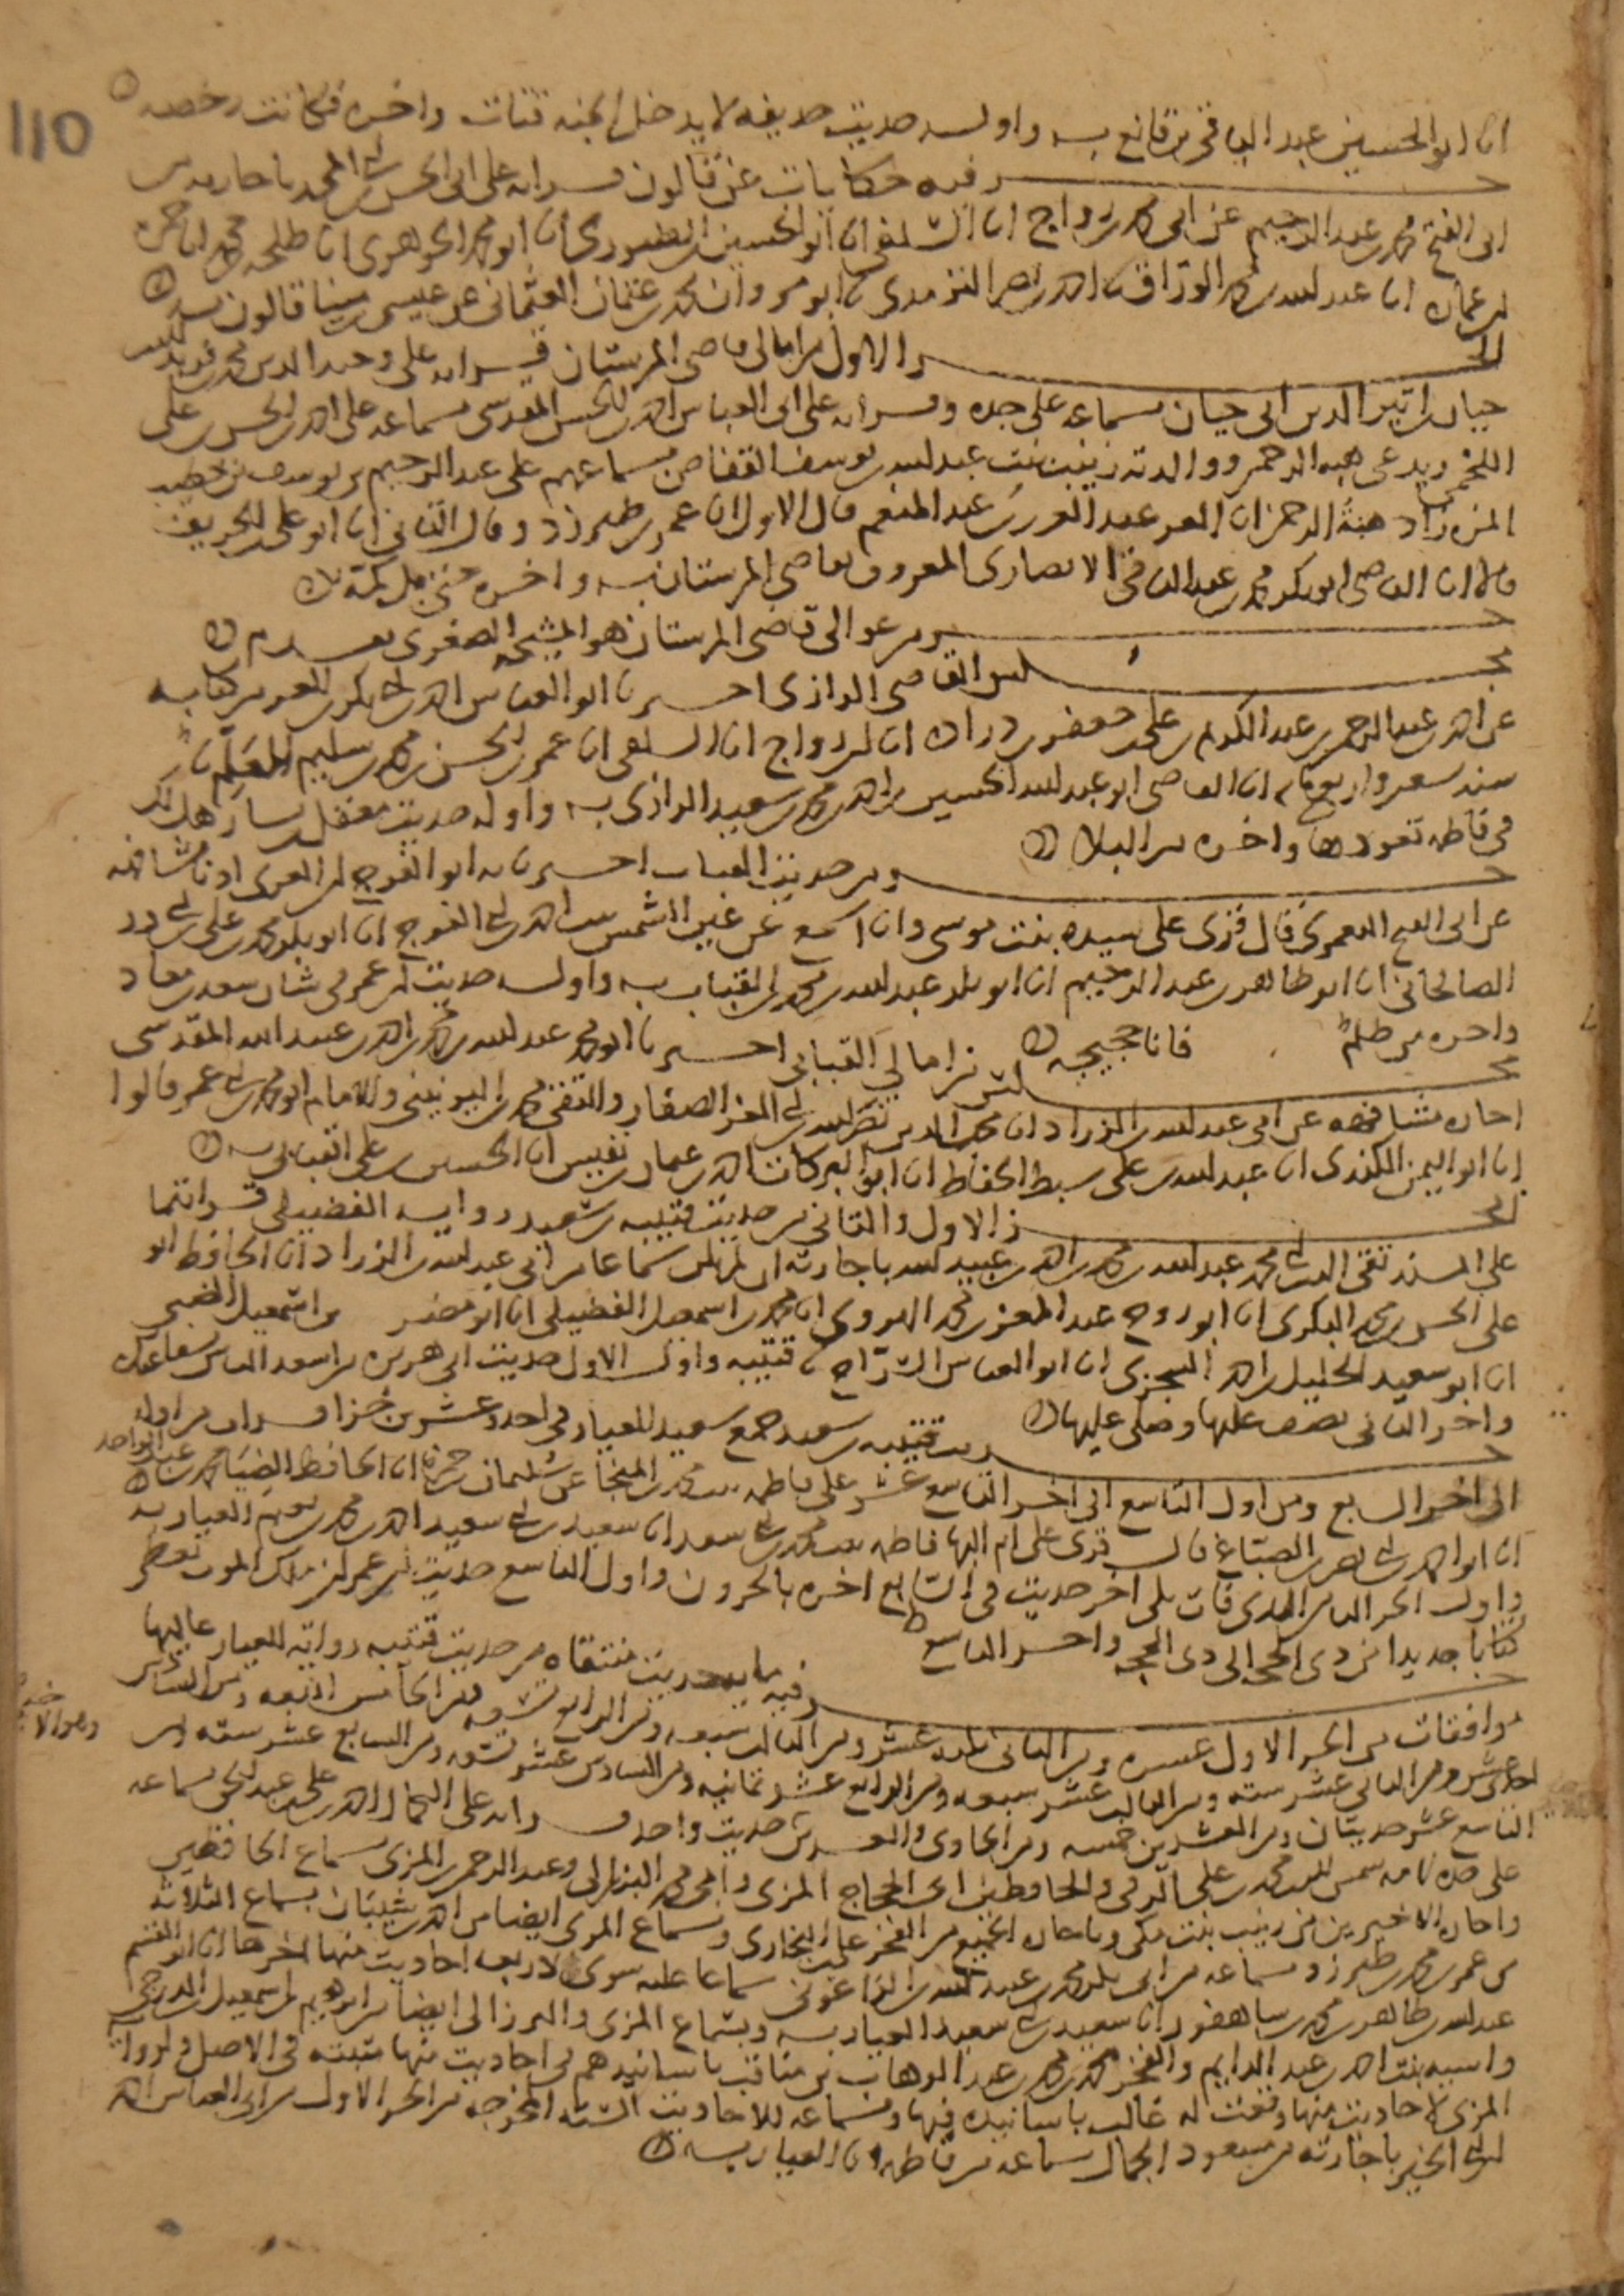 110
انا ابو الحسين عبد الباقي بن قانع به واوله حديث حذيفه لا يدخل الجنه قتات واخره فكانت رخصه
جزء فيه حكايات عن قالون قراته على ابي الحسن بن ابي المجد باجازته من
ابي الفتح محمد بن عبد الرحيم عن ابي محمد بن رواج انا السلفي انا ابو الحسين الطيوري انا ابو محمد الجوهري انا طلحه بن محمد انا حمزه
بن عماره انا عبد الله بن محمد الوراق احمد بن نصر الترمدي ابو مروان محمد بن عثمان العثماني عن عيسى بن مينا قالون به
الجزء الاول من امالي قاضي المرستان قراته على وحيد الدين محمد بن فريد الدين
حيان بن اثير الدين ابي حيان بسماعه على جده وقراته على ابي العباس احمد بن الحسن المقدسي بسماعه على احمد بن الحسن بن علي
اللخمي ويدعى هبه الرحمن ووالدته زينب بنت عبد الله بن يوسف القفاص بسماعهم على عبد الرحيم بن يوسف بن خطيب
المزه زاد هبة الرحمن انا العز عبد العزيز بن عبد المنعم قال الاول انا عمر بن طبرزد وقال الثاني انا ابو علي بن الخريف
قالا انا القاضي ابو بكر محمد بن عبد الباقي الانصاري المعروف بقاضي المرستان به واخره
جزء من عوالي قاضي المرستان هو المشيخه الصغرى تقدم
مجلس القاضي الرازي اخبرنا ابو العباس احمد بن ابي بكر بن العز من كتابه
عن احمد بن عبد الرحمن بن عبد الكريم بن علي بن جعفر بن درادة انا ابن رواج انا السلفي انا عمر بن الحسن بن محمد بن سليم المعلم
سنه تسعين واربعمايه انا القاضي ابو عبد الله الحسين بن احمد بن محمد بن سعيد الرازي به واوله حديث معقل بن يسار هل لك
في فاطمه تعودها واخره من البلا
جزء من حديث القباب اخبرنا به ابو الفرج بن الغزي اذنا مشافهه
عن ابي الفتح اليعمري قال قرئ على سيده بنت موسى وانا اسمع عن عين الشمس بنت احمد بن ابي الفرج انا ابو بكر محمد بن علي بن ابي ذر
الصالحاني انا ابو طاهر بن عبد الرحيم انا ابو بكر عبد الله بن محمد القباب به واوله حديث ابن عمر في شان سعد بن معاذ
واخره من ظلم فانا حجيجه
مجلس من امالي القبابي اخبرنا ابو محمد عبد الله بن محمد بن احمد بن عبيد الله المقدسي
اجازه مشافهه عن ابي عبد الله بن الزراد انا محب الدين نصر الله بن ابي العز الصفار والتقي محمد اليونيني والامام ابو محمد بن ابي عمر قالوا
انا ابو اليمن الكندي انا عبد الله بن علي سبط الخياط انا ابو البركات احمد بن عمار بن نفيس انا الحسين بن علي القبابي به
الجزء الاول والثاني من حديث قتيبه بن سعيد روايه الفضيلي قراتهما
على المسند تقي الدين ابي محمد عبد الله بن محمد بن احمد بن عبيد الله باجازته ان لم يكن سماعا من ابي عبد الله بن الزراد انا الحافظ ابو
علي الحسن بن محمد البكري انا ابو روح عبد المعز بن محمد الهروي انا محمد بن اسمعيل الفضيلي انا ابو مضر من اسمعيل الضبي
انا ابو سعيد الخليل بن احمد السجزي انا ابو العباس السراج قتيبه واول الاول حديث ابي هريره من اسعد الناس بشفاعتك
واخر الثاني نصف عليها وصلى عليها
حديث قتيبه بن سعيد جمع سعيد العيار في احد وعشرين جزا قرات من اوله
الى اخر السابع ومن اول التاسع الى اخر التاسع عشر على فاطمه بنت محمد بن المنجا عن سليمان بن حمزه انا الحافظ الضيا محمد بن عبد الواحد
انا ابو احمد بن ابي نصر بن الصباغ قال قرئ على ام البها فاطمه بنت محمد بن ابي سعد انا سعيد بن ابي سعيد احمد بن محمد بن نعيم العيار به
واول الجزء الثامن الذي فات يلي اخر حديث في السابع اخره بالحرون واول التاسع حديث ابن عمر ان ملك الموت تعطى
كتابا جديدا من ذي الحجه الى ذي الحجه واخر التاسع
جزء فيه مايه حديث منتقاه من حديث قتيبه روايه العيار عاليها
موافقات من الجزء الاول عشره ومن الثاني ثلاثه عشر ومن الثالث سبعه ومن الرابع تسعه ومن الخامس اربعه ومن السادس
احد عشر ومن الثاني عشر سته ومن الثالث عشر سبعه ومن الرابع عشر ثمانيه ومن السادس عشر تسعه ومن السابع عشر سته ومن
التاسع عشر حديثان ومن العشرين خمسه ومن الحادي والعشرين حديث واحد قراته على الكمال احمد بن علي بن عبد الحق بسماعه
على جده لامه شمس الدين محمد بن علي الرقي والحافظين ابي الحجاج المزي وابي محمد البرزالي وعبد الرحمن المزي بسماع الحافظين
واجازه الاخيرين من زينب بنت مكي وباجازه الجميع من الفخر علي بن البخاري وبسماع المزي ايضا من احمد بن شيبان بسماع الثلاثه
من عمر بن محمد بن طبرزد بسماعه من ابي بكر محمد بن عبيد الله بن الزاغوني سماعا عليه سوى لاربعه احاديث منها اخرها انا ابو القسم
عبد الله بن طاهر بن محمد بن شاهفور انا سعيد بن ابي سعيد العيار به وبسماع المزي والبرزالي ايضا من ابراهيم بن اسمعيل الدرجي
واسيه بنت احمد بن عبد الدايم والفخر محمد بن محمد بن عبد الوهاب بن مناقب باسانيدهم في احاديث منها مثبته في الاصل ولرواية
المزي لاحاديث منها وقعت له غالب باسانيده فيها وبسماعه للاحاديث السته المخرجه من الجزء الاول من ابي العباس احمد
بن ابي الخير باجازته من مسعود الجمال بسماعه من فاطمه انا العيار به